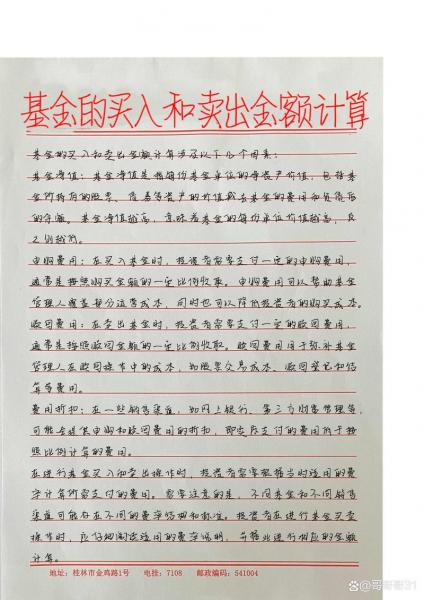 基金的买入和卖出金额计算
基金的买入和卖出金额计算涉及以下几个因素:
基金净值:基金净值是指每份基金单位的净资产价值,包括基
金所持有的股票、债券等资产的价值减去基金的费用和负债后
的净额。基金净值越高,意味着基金的每份单位价值越高,反
之则越低。
申购费用:在买入基金时,投资者需要支付一定的申购费用,
通常是按照购买金额的一定比例收取。申购费用可以帮助基金
管理人覆盖部分运营成本,同时也可以降低投资者的购买成本。
赎回费用:在卖出基金时,投资者需要支付一定的赎回费用,
通常是按照赎回金额的一定比例收取。赎回费用用于弥补基金
管理人在赎回操作中的成本,如股票交易成本、赎回登记和结
算等费用。
费用折扣:在一些销售渠道,如网上银行、第三方财富管理等,
可能会提供申购和赎回费用的折扣,即实际支付的费用低于按
照比例计算的费用。
在进行基金买入和卖出操作时,投资者需要根据当时适用的费
率计算所需支付的费用。需要注意的是,不同基金和不同销售
渠道可能存在不同的费率结构和标准。投资者在进行基金买卖
操作时,应仔细阅读适用的费率说明,并据此进行相应的金额
计算。
地址:桂林市金鸡路1号 电挂:7108 邮政编码:541004
@哥哥哥31